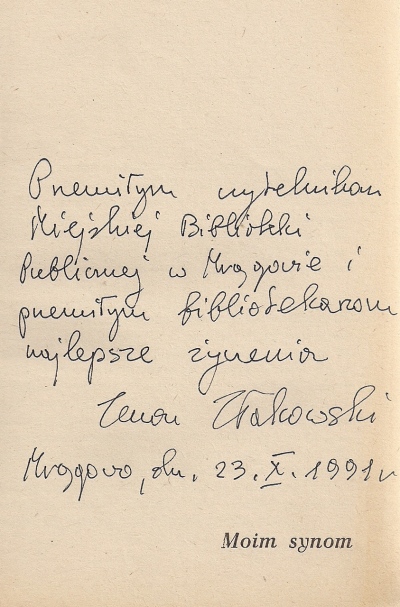 Przemiłym czytelnikom
Miejskiej Biblioteki
Publicznej w Mrągowie i
przemiłym bibliotekarom
najlepsze życzenia
Złakowski
Mrągowo, dn. 23.X.1991 r
Moim synom